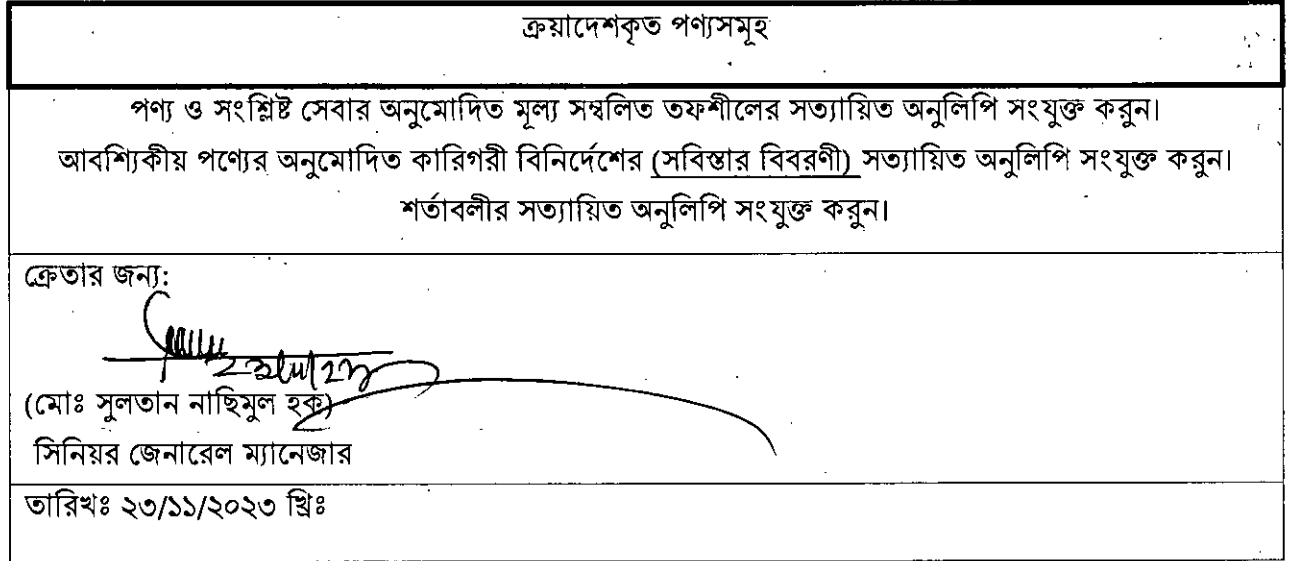 ক্রয়াদেশকৃত পণ্যসমূহ
পণ্য ও সংশ্লিষ্ট সেবার অনুমোদিত মূল্য সম্বলিত তফশীলের সত্যায়িত অনুলিপি সংযুক্ত করুন।
আবশ্যিকীয় পণ্যের অনুমোদিত কারিগরী বিনির্দেশের (সবিস্তার বিবরণী) সত্যায়িত অনুলিপি সংযুক্ত করুন।
শর্তাবলীর সত্যায়িত অনুলিপি সংযুক্ত করুন।
ক্রেতার জন্য:
(মোঃ সুলতান নাছিমুল হক)
সিনিয়র জেনারেল ম্যানেজার
তারিখঃ ২৩/১১/২০২৩ খ্রিঃ